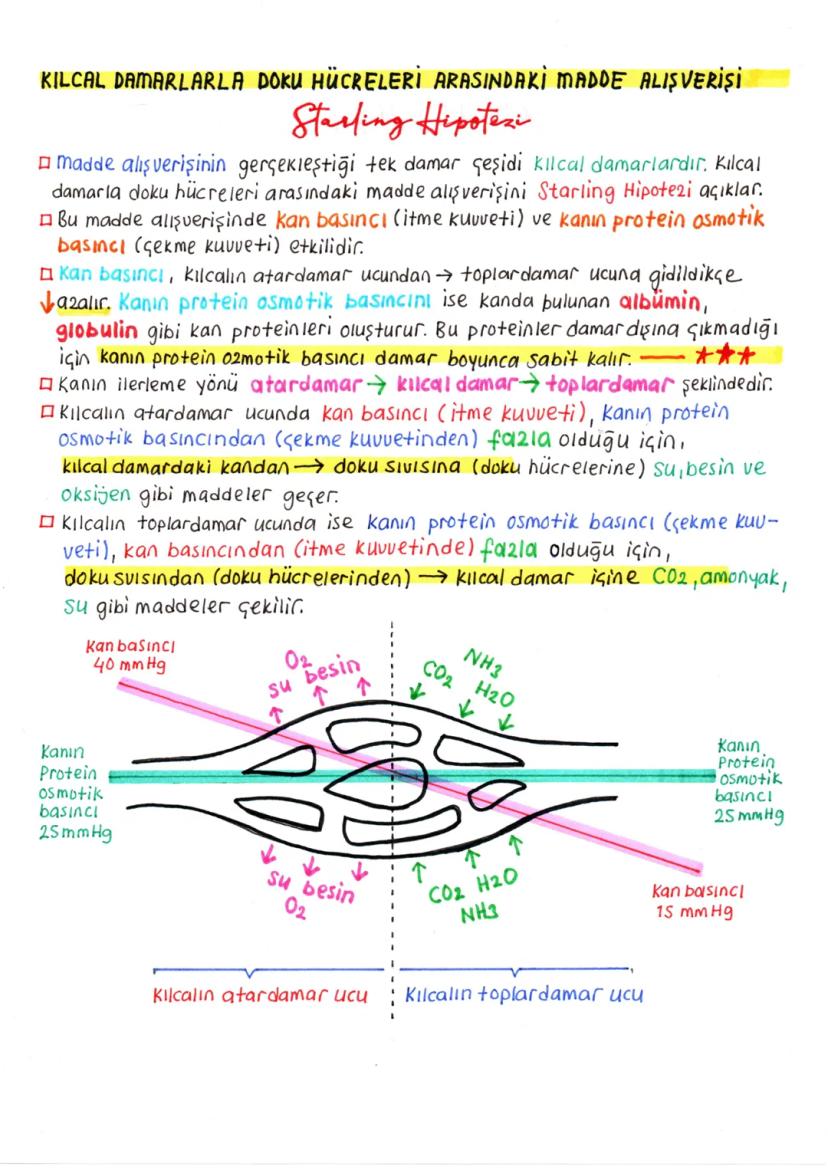 KILCAL DAMARLARLA DOKU HÜCRELERİ ARASINDAKİ MADDE ALIŞVERİŞİ
Starling Hipotezi
Madde alışverişinin gerçekleştiği tek damar çeşidi kılcal damarlardır. Kılcal
damarla doku hücreleri arasındaki madde alışverişini Starling Hipotezi açıklar.
Bu madde alışverişinde kan basıncı (itme kuvveti) ve kanın protein osmotik
basıncı (çekme kuvveti) etkilidir.
Kan basıncı, kılcalın atardamar ucundan → toplardamar ucuna gidildikçe
↓azalır. Kanın protein osmotik basıncını ise kanda bulunan albümin,
globulin gibi kan proteinleri oluşturur. Bu proteinler damar dışına çıkmadığı
için kanın protein o2motik basıncı damar boyunca sabit kalır. — ★★★
Kanın ilerleme yönü atardamar → kılcal damar → toplardamar şeklindedir.
Kılcalın atardamar ucunda kan basıncı (itme kuvveti), kanın protein
osmotik basıncından (çekme kuvvetinden) fazla olduğu için,
kılcal damardaki kandan → doku sıvısına (doku hücrelerine) su, besin ve
oksijen gibi maddeler geçer.
Kılcalın toplardamar ucunda ise kanın protein osmotik basıncı (çekme kuv-
veti), kan basıncından (itme kuvvetinde) fazla olduğu için,
doku svısından (doku hücrelerinden) → kılcal damar içine CO2, amonyak,
su gibi maddeler çekilir.
Kan basıncı
40 mmHg
O2
su besin
CO2 NH3
H2O
Kanın
Protein
osmotik
basıncı
25 mmHg
Kanın
Protein
osmotik
basıncı
25 mmHg
su besin
O2
CO2 H2O
NH3
Kan basıncı
15 mmHg
Kılcalın atardamar ucu
Kılcalın toplardamar ucu